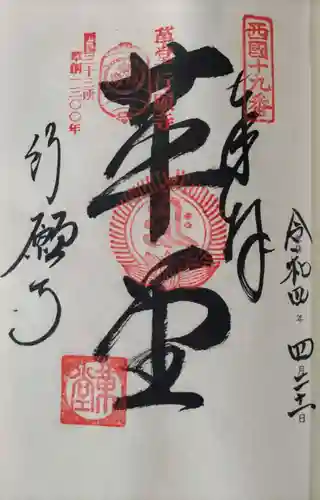 西國十九番
奉拝
令和四年四月二十一日
革堂
西国三十三所
草創一三〇〇年
行願寺
革堂